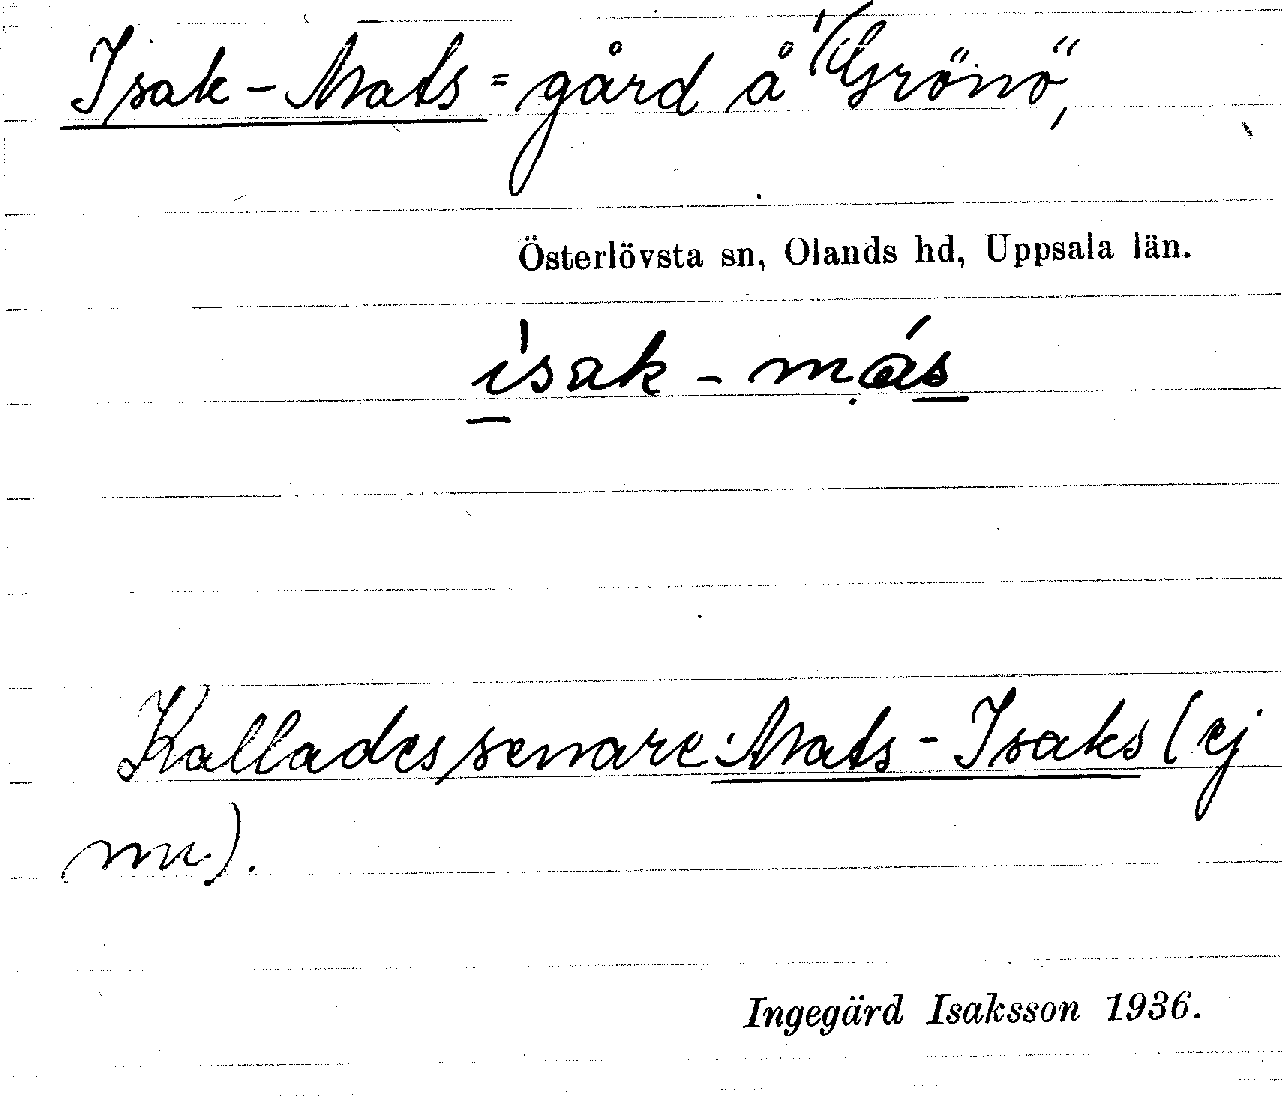 Isak-Mats = gård å Grönö,
Österlövsta sn, Olands hd, Uppsala län.
ísak-más
Kallades senare Mats-Isaks (ej
nu).
Ingegärd Isaksson 1936.